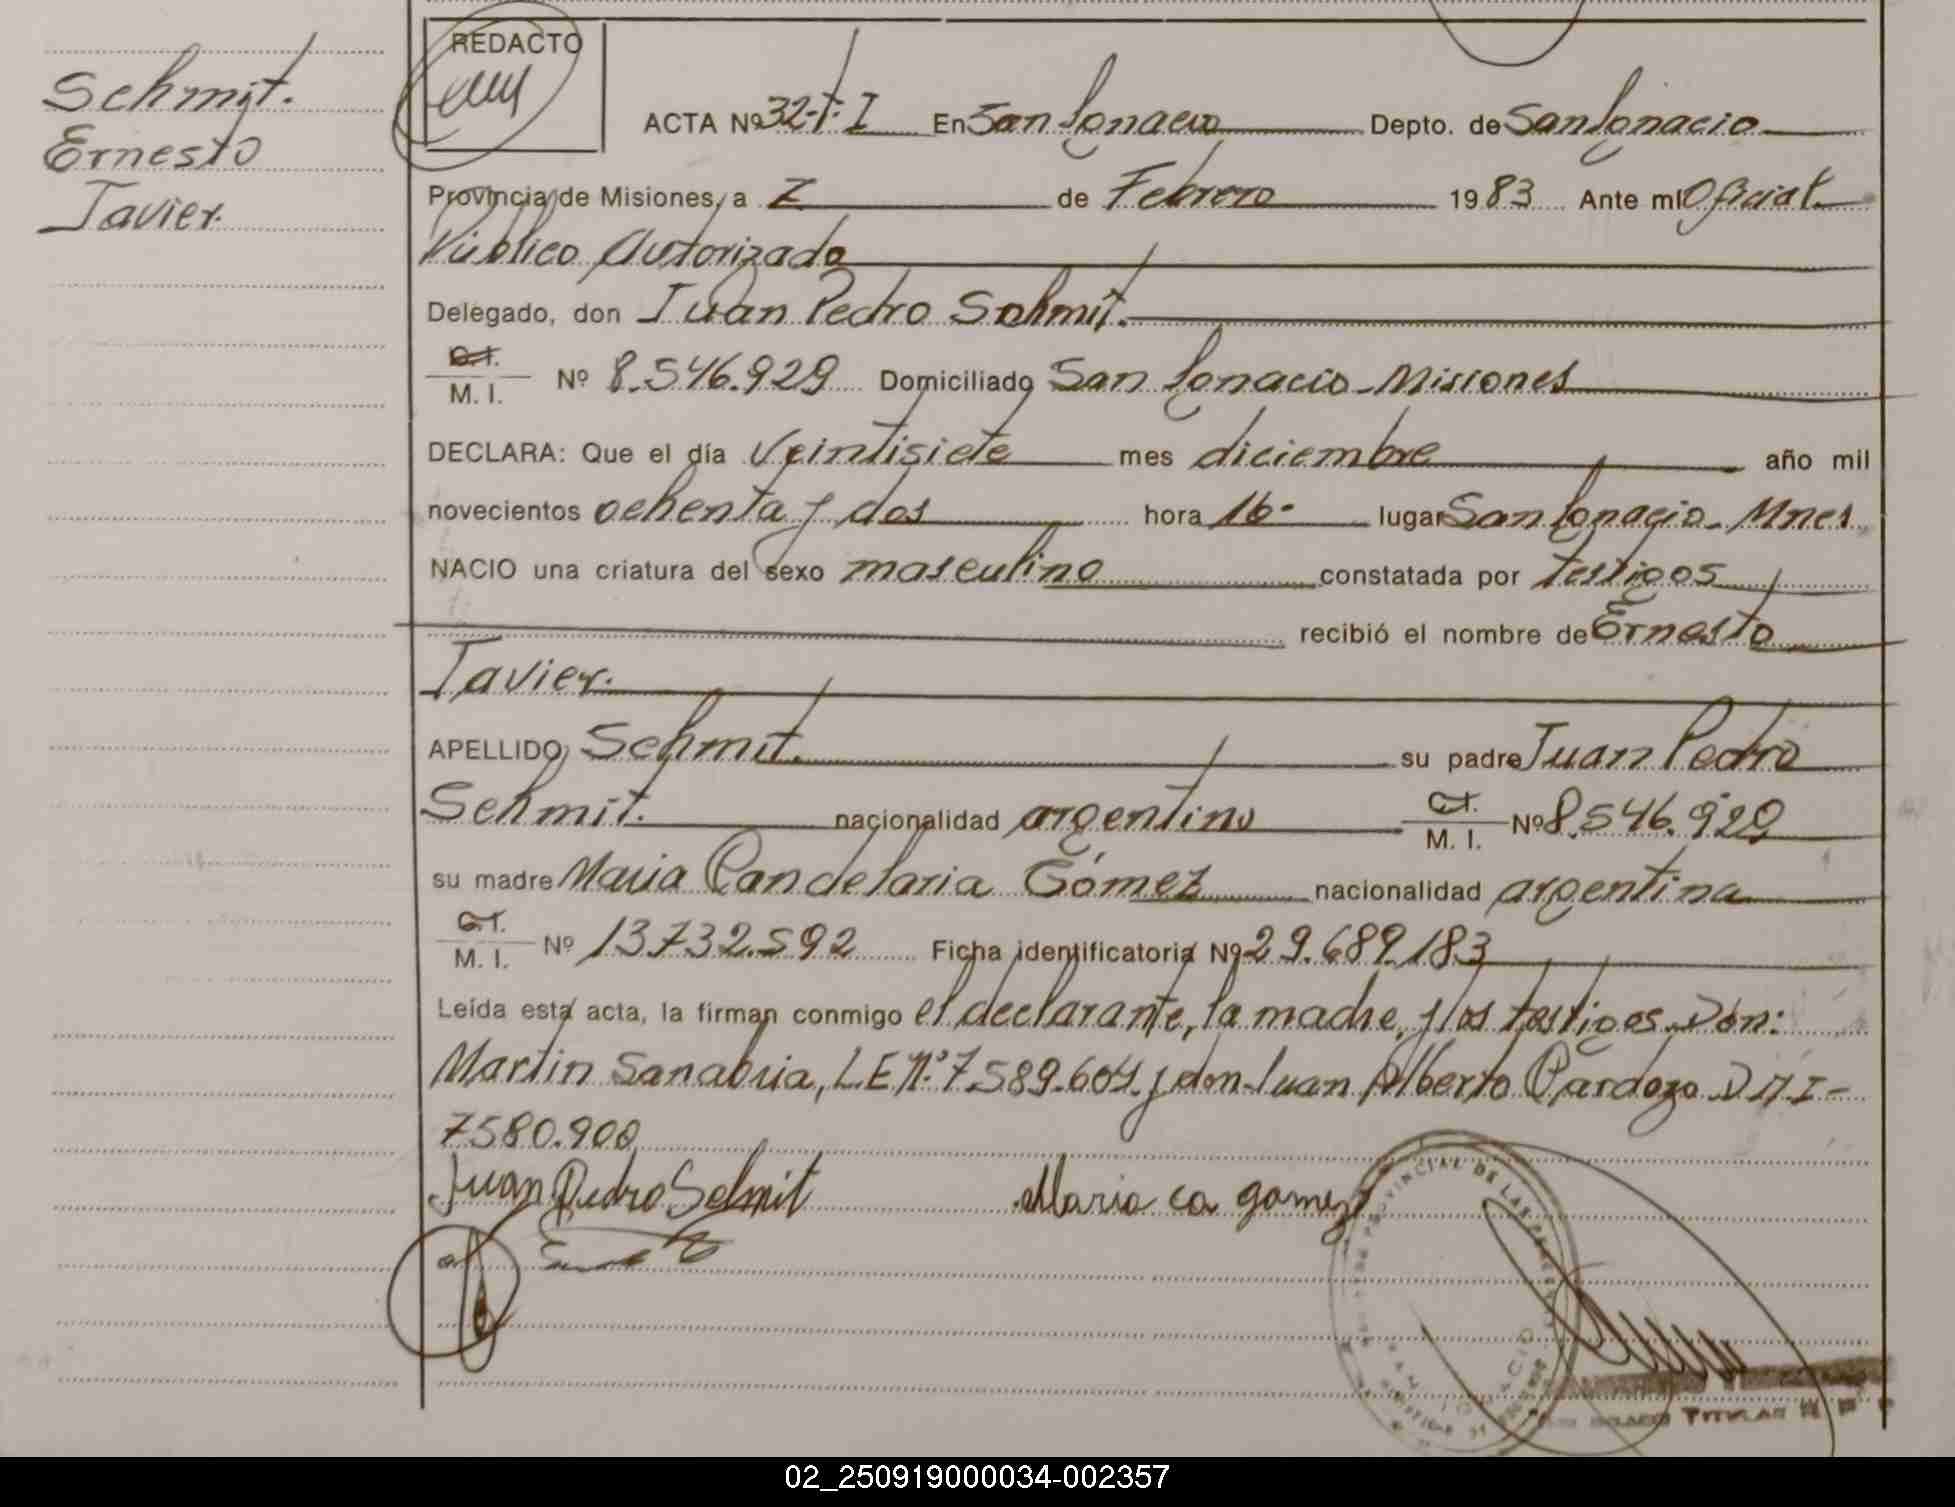 Schmit.
Ernesto
Javier.
REDACTO
ACTA Nº 32-T-I En San Ignacio Depto. de San Ignacio
Provincia de Misiones, a 7 de Febrero 1983 Ante mi Oficial
Público Autorizado
Delegado, don Juan Pedro Schmit.
C.I.
M. I. Nº 8.546.929 Domiciliado San Ignacio - Misiones
DECLARA: Que el día veintisiete mes diciembre año mil
novecientos ochenta y dos hora 16- lugar San Ignacio - Mnes
NACIO una criatura del sexo masculino constatada por testigos
recibió el nombre de Ernesto
Javier.
APELLIDO Schmit. su padre Juan Pedro
Schmit. nacionalidad argentino C.I. M. I. Nº 8.546.929
su madre Maria Candelaria Gómez nacionalidad argentina
C.I.
M. I. Nº 13732.592 Ficha identificatoria Nº 29.689.183
Leída esta acta, la firman conmigo el declarante, la madre, y los testigos Don:
Martin Sanabria, L E Nº 7589.604 y don Juan Alberto Cardozo D N I-
7580.900
Juan Pedro Schmit Maria ca gomez
PROVINCIAL DE LAS
TITULAR
02_250919000034-002357